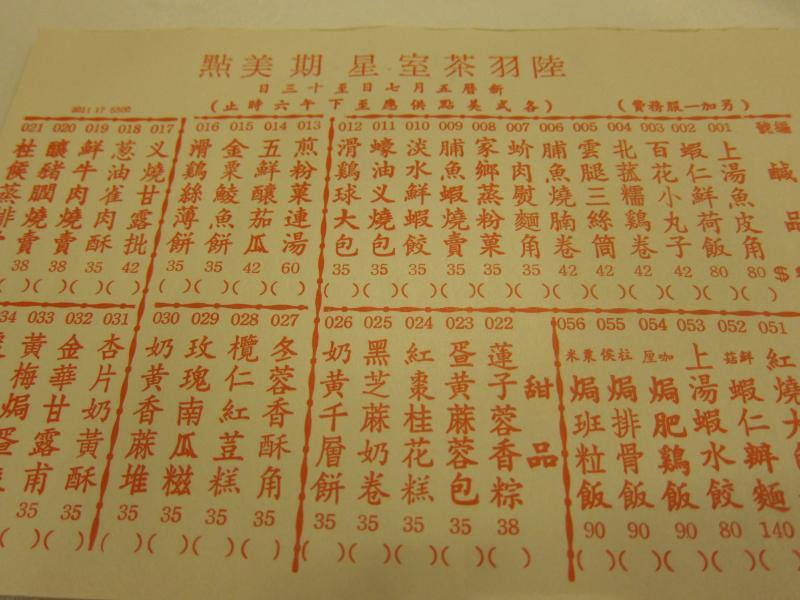 陸羽茶室星期美點
新曆五月七日至十三日
(另加一服務費)
(各式美點供應至下午六時止)
2011 17 5500
編號 鹹品 $
001 上湯魚皮角 80 ( )
002 蝦仁鮮荷飯 80 ( )
003 百花小丸子 42 ( )
004 北菰糯鷄卷 42 ( )
005 雲腿三絲筒 42 ( )
006 脯魚燒腩卷 42 ( )
007 蚧肉熨麵角 35 ( )
008 家鄉蒸粉菓 35 ( )
009 脯魚蝦燒賣 35 ( )
010 淡水鮮蝦餃 35 ( )
011 蠔油义燒包 35 ( )
012 滑鷄球大包 35 ( )
013 煎粉菓連湯 60 ( )
014 五鮮釀茄瓜 42 ( )
015 金粟鯪魚餅 35 ( )
016 滑鷄絲薄餅 35 ( )
017 义燒甘露批 42 ( )
018 葱油雀肉酥 35 ( )
019 鮮牛肉燒賣 38 ( )
020 釀豬膶燒賣 38 ( )
021 柱侯蒸排
051 紅燒大
052 鮮菇蝦仁辦麵 140 ( )
053 上湯蝦水餃 80 ( )
054 咖厘焗肥鷄飯 90 ( )
055 柱侯焗排骨飯 90 ( )
056 粟米焗班粒飯 90 ( )
甜品
022 蓮子蓉香粽 38 ( )
023 蛋黃蔴蓉包 35 ( )
024 紅棗桂花糕 35 ( )
025 黑芝蔴奶卷 35 ( )
026 奶黃千層餅 35 ( )
027 冬蓉香酥角 35 ( )
028 欖仁紅荳糕 35 ( )
029 玫瑰南瓜糍 35 ( )
030 奶黃香蔴堆 35 ( )
031 杏片奶黃酥 35 ( )
032 金華甘露甫 35 ( )
033 黃梅焗蛋
34